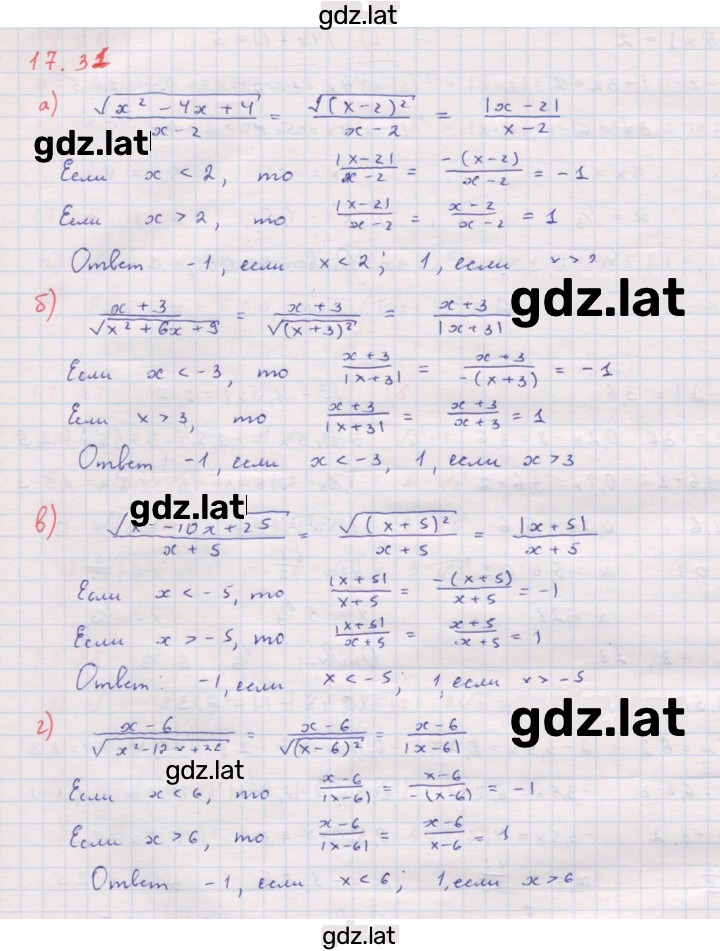 gdz.lat
17.31
а) √(x² - 4x + 4) / (x - 2) = √((x-2)²) / (x - 2) = |x - 2| / (x - 2)
gdz.lat
Если x < 2, то |x-2| / (x-2) = -(x-2) / (x-2) = -1
Если x > 2, то |x-2| / (x-2) = (x-2) / (x-2) = 1
Ответ -1, если x < 2; 1, если x > 2
б) (x + 3) / √(x² + 6x + 9) = (x + 3) / √((x+3)²) = (x + 3) / |x + 3|
gdz.lat
Если x < -3, то (x+3) / |x+3| = (x+3) / -(x+3) = -1
Если x > 3, то (x+3) / |x+3| = (x+3) / (x+3) = 1
Ответ -1, если x < -3, 1, если x > 3
gdz.lat
в) √(x² - 10x + 25) / (x + 5) = √((x+5)²) / (x + 5) = |x + 5| / (x + 5)
Если x < -5, то |x+5| / (x+5) = -(x+5) / (x+5) = -1
Если x > -5, то |x+5| / (x+5) = (x+5) / (x+5) = 1
Ответ: -1, если x < -5; 1, если x > -5
gdz.lat
г) (x - 6) / √(x² - 12x + 36) = (x - 6) / √((x-6)²) = (x - 6) / |x - 6|
gdz.lat
Если x < 6, то (x-6) / |x-6| = (x-6) / -(x-6) = -1
Если x > 6, то (x-6) / |x-6| = (x-6) / (x-6) = 1
Ответ -1, если x < 6; 1, если x > 6
gdz.lat